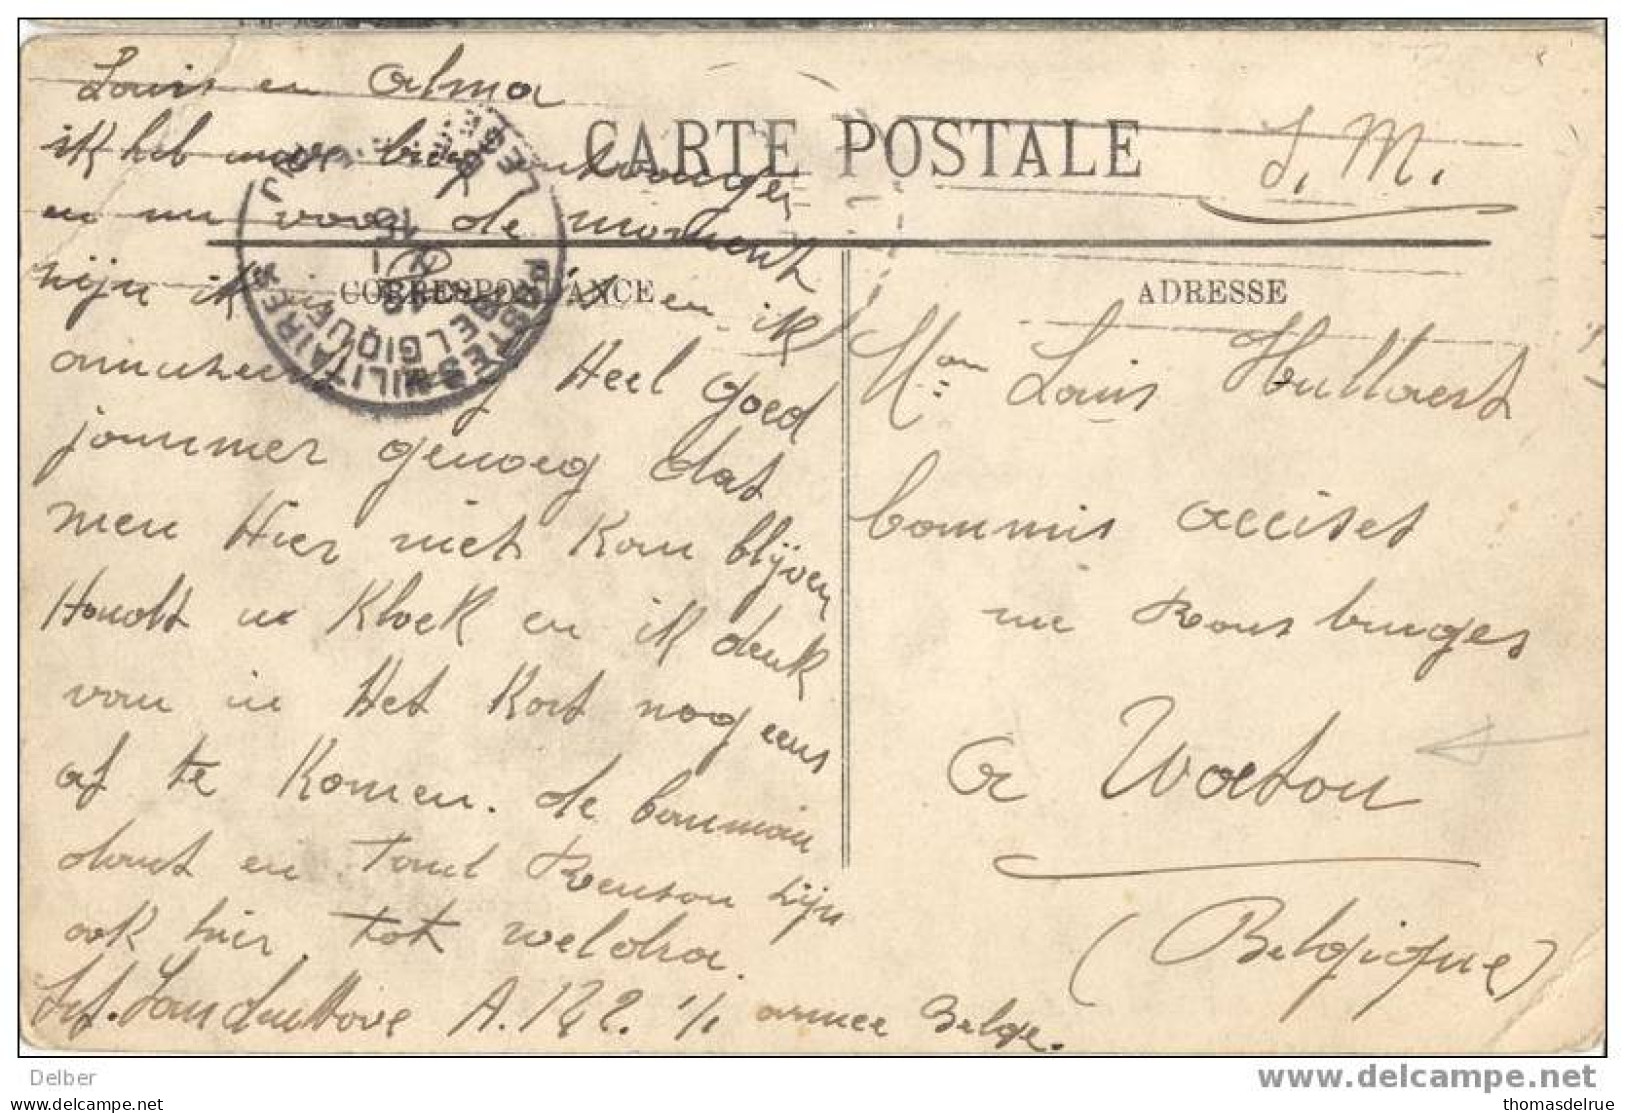 Louis en Alma
CARTE POSTALE
S. M.
ik heb uwe brief ontvangen
en nu voor de moment
zijn ik en ik
CORRESPONDANCE
ADRESSE
POSTES MILITAIRES
BELGIQUE
amuseer Heel goed
jammer genoeg dat
men Hier niet Kan blijven
Houdt u Kloek en ik denk
van in Het Kort nog eens
af te Komen. de
en Renson zijn
ook hier. tot weldra.
A. 122. 1/1 armee Belge.
Mon Louis Hullaert
Commis accises
rue Rousbruges
a Watou
(Belgique)
Delber
www.delcampe.net
www.delcampe.net
thomasdelrue